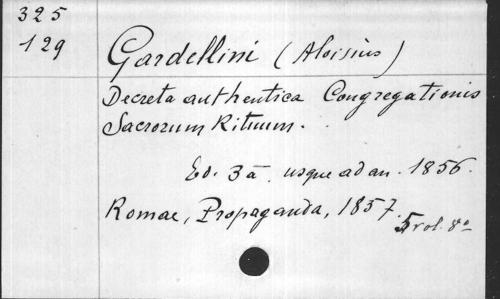 325
129
Gardellini (Aloisius)
Decreta authentica Congregationis
Sacrorum Rituum.
Ed. 3a usque ad an. 1856.
Romae, Propaganda, 1857.
5 vol. 8o